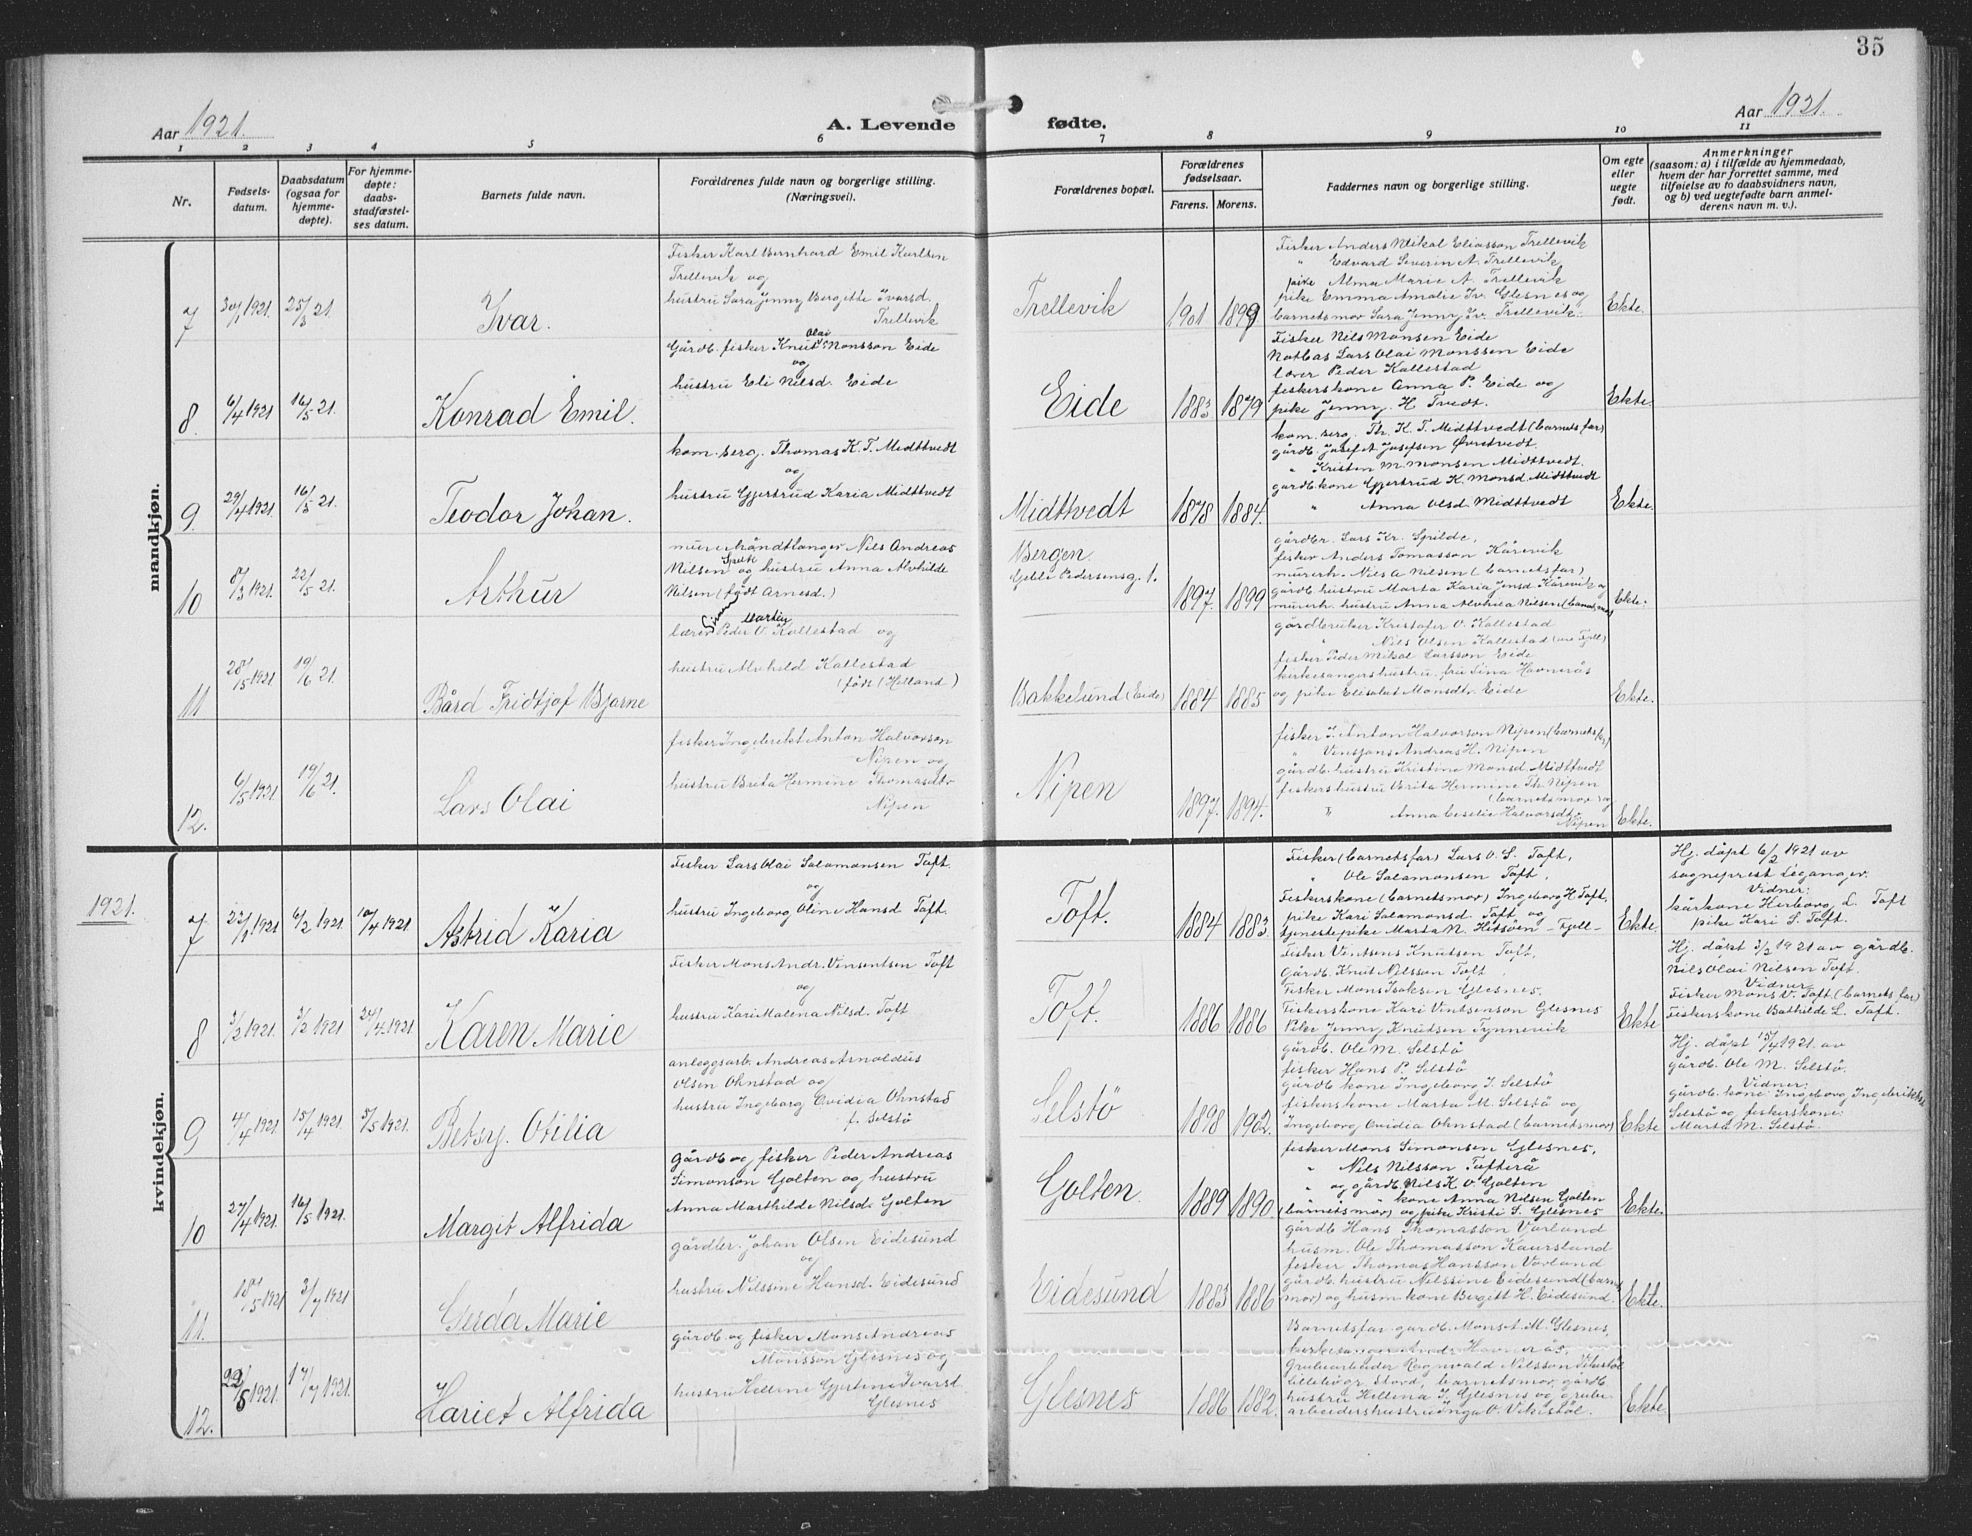 35
Aar 1921.
A. Levende fødte.
Aar 1921.
1 2 3 4 5 6 7 8 9 10 11
Nr.
Fødsels-
datum.
Daabsdatum
(ogsaa for
hjemme-
døpte).
For hjemme-
døpte:
daabs-
stadfæstel-
ses datum.
Barnets fulde navn.
Forældrenes fulde navn og borgerlige stilling.
(Næringsvei).
Forældrenes bopæl.
Forældrenes
fødselsaar.
Farens. Morens.
Faddernes navn og borgerlige stilling.
Om egte
eller
uegte
født.
Anmerkninger
(saasom: a) i tilfælde av hjemmedaab,
hvem der har forrettet samme, med
tilføielse av to daabsvidners navn,
og b) ved uegtefødte barn anmel-
derens navn m. v.).
mandkjøn.
7 30/1 1921. 25/3 21
Ivar.
Fisker Karl Bernhard Emil Karlsen
Trellevik og
hustru Sara Jenny Bergitte Ivarsd.
Trellevik
Trellevik 1901 1899
Fisker Anders Mikal Eliasson Trellevik
" Edvard Severin A. Trellevik
pike Alma Marie A. Trellevik
pike Emma Amalie Iv. Glesnes og
barnets mor Sara Jenny Iv. Trellevik.
Ekte.
8. 6/4 1921 16/5 21.
Konrad Emil.
Gårdb. fisker Knut Olai Monsson Eide
og
hustru Eli Nilsd. Eide
Eide 1883 1879
Fisker Nils Monsen Eide
Notbas Lars Olai Monssen Eide
lærer Peder Kallestad
fiskerskone Anna P. Eide og
pike Jenny H. Tvedt.
Ekte.
9. 29/4 1921. 16/5 21.
Teodor Johan.
kom. berg. Thomas K. T. Midttvedt
og
hustru Gjertrud Karia Midttvedt
Midttvedt 1878 1884.
kom. berg. Th. K. T. Midttvedt (barnets far)
gårdb. Josef A Josefsen Øvretvedt.
" Kristen M. Monsen Midttvedt.
gårdb. kone Gjertrud K. Monsd. Midttvedt
" Anna Olsd. Midttvedt
Ekte.
10 8/3 1921. 22/5 21.
Arthur
murerhåndtlanger Nils Andreas
Nilsen og hustru Anna Alvhilde
Nilsen (født Arnesd.)
Bergen
Gabli Pedersensg. 1. 1897. 1899
gårdbr. Lars Kr. Spilde,
fisker Anders Tomasson Kårevik
murerh. Nils A Nilsen (barnets far)
gårdb. hustru Marta Karia Jensd. Kårevik og
murerh. hustru Anna Alvhild Nilsen (barnets mor)
Ekte.
11 28/5 1921 19/6 21.
Bård Fridtjof Bjarne
lærer Peder Martin V. Kallestad og
hustru Alvhild Kallestad
(født Helland)
Bakkelund (Eide) 1884 1885
gårdbruker Kristofer V. Kallestad
" Nils Olsen Kallestad
fisker Peder Mikal Larsson Eide
kirkesangershustru, fru Sina Havnerås
og pike Elisabet Monsdtr. Eide
Ekte.
12. 6/5 1921. 19/6 21.
Lars Olai
fisker Ingebrikt Anton Halvorson
Nipen og
hustru Brita Hermine Thomasdtr
Nipen
Nipen 1897. 1894.
fisker I. Anton Halvorson Nipen (barnets far)
" Vensjans Andreas H. Nipen
gårdb. hustru Kristine Monsd. Midttvedt
fiskershustru Brita Hermine Th. Nipen
(barnets mor) og
" Anna Ceselie Halvorsdtr.
Nipen
Ekte.
1921.
kvindekjøn.
7 22/1 1921 6/2 1921 10/4 1921
Astrid Karia
Fisker Lars Olai Salamonsen Toft.
og
hustru Ingeborg Oline Hansd. Toft.
Toft. 1884 1883.
Fisker (barnets far) Lars O. S. Toft,
" Ole Salamonsen Toft,
Fiskerskone (barnets mor) Ingeborg H. Toft,
pike Kari Salamonsd. Toft og
tjenestepike Marta N. Hitsøen - Fjell -
Ekte.
Hj. døpt 6/2 1921 av
sogneprest Leganger.
Vidner:
kårkone Herborg L. Toft
pike Kari S. Toft.
8 3/2 1921. 3/2 1921 24/4 1921.
Karen Marie
Fisker Mons Andr. Vinsentsen Toft
og
hustru Kari Malena Nilsd. Toft
Toft. 1886 1886
Fisker Vintsens Knutsen Toft,
Gårdb. Knut Nilsson Toft,
Fisker Mons Isaksen Glesnes.
Fiskerskone Kari Vintsenson Glesnes
Pike Jenny Knutsen Tynnevik
Ekte
Hj. døpt 3/2 1921 av gårdb.
Nils Olai Nilsen Toft.
Vidner
Fisker Mons V. Toft. (barnets far)
Fiskerskone Bathilde L. Toft.
9 4/4 1921. 15/4 1921. 5/5 1921.
Betsy Otilia
anleggsarb. Andreas Arnoldus
Olsen Ohnstad og
hustru Ingeborg Ovidia Ohnstad
f. Selstø
Selstö 1898 1902.
gårdb. Ole M. Selstö
fisker Hans P. Selstö
Gårdb kone Ingeborg I. Selstö
fiskerskone Marta M. Selstö og
Ingeborg Ovidia Ohnstad (barnets mor)
Ekte
Hj. døpt 15/4 1921. av
gårdb. Ole M. Selstö.
Vidner:
gårdb. kone: Ingeborg Ingebriktsd.
Selstö og fiskerskone:
Marta M. Selstö.
10 27/4 1921. 16/5 1921.
Margit Alfrida
gårdb og fisker Peder Andreas
Simonson Golten og hustru
Anna Marthilde Nilsd. Golten
Golten 1889 1890.
fisker Mons Simonsen Glesnes,
" Nils Nilsson Tofterå
" og gårdb. Nils K. V. Golten
" " kone Anna Nilsen Golten
(barnets mor) og pike Kristi S. Glesnes
Ekte.
11. 18/5 1921 3/7 1921
Gerda Marie
gårdbr. Johan Olsen Eidesund
og
hustru Nilssine Hansd. Eidesund
Eidesund 1883 1886
gårdb Hans Thomasson Vorland
husm. Ole Thomasson Kaursland
fisker Thomas Hansson Vorland
gårdb. hustru Nilssine Eidesund (barnets
mor) og husm. kone Bergitt H. Eidesund.
Ekte.
12. 29/5 1921. 17/7 1921.
Hariet Alfrida
gårdb og fisker Mons Andreas
Monsson Glesnes og
hustru Hellene Gjertine Ivarsd.
Glesnes
Glesnes 1886 1882.
Barnets far gårdb. Mons A. M. Glesnes,
kirkesanger Andr. Havnerås,
Grubearbeider Ragnvald Nilsson Vikestøl
Lillebøgr. Stord, barnets mor, gårdb.
hustru Hellena I. Glesnes og grube-
arbeidershustru Inga O. Vikestøl.
Ekte